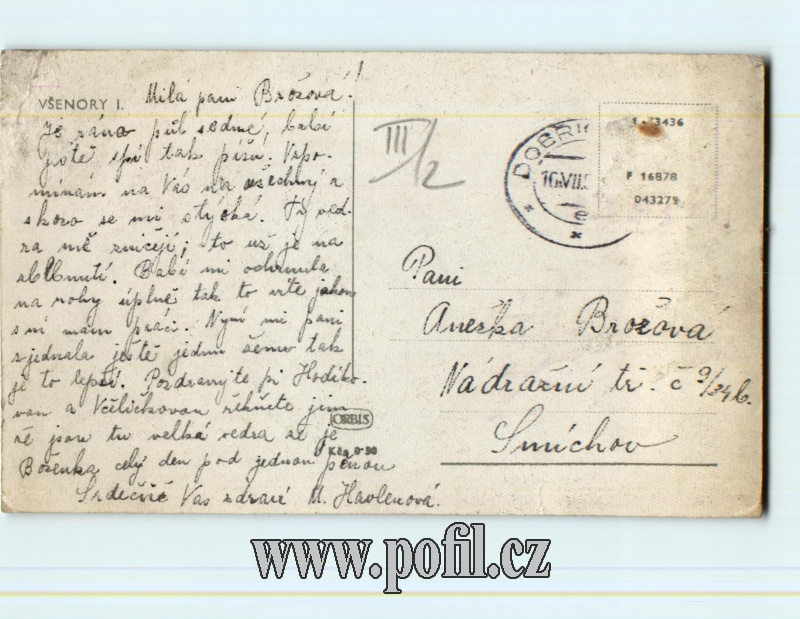 VŠENORY I.
Milá paní Brožová!
Je ráno půl sedmé, babi
ještě spí tak píšu. Vzpo-
mínám na Vás na všechny a
skoro se mi stýská. Ty ved-
ra mě zničejí, to už je na
zblbnutí. Babi mi
na rohy úplně tak to víte jakou
s ní mám práci. Nyní mi paní
sjednala ještě jednu ženu tak
je to lepší. Pozdravujte pí Hodíko-
vou a Včeličkovou řekněte jim
že jsou tu velká vedra že je
Boženka celý den pod jednou peřinou
Srdečně Vás zdraví M. Havlenová.
III/2
DOBŘI
16.VII.
e
3436
P 16878
043279
Paní
Anežka Brožová
Nádražní tř. č 9/246.
Smíchov
ORBIS
Kčs 0·90
www.pofil.cz